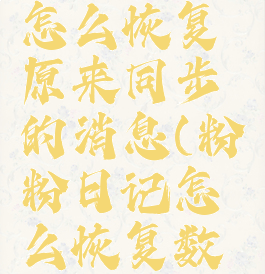 怎么恢复
原来同步
的消息(粉
粉日记怎
么恢复数